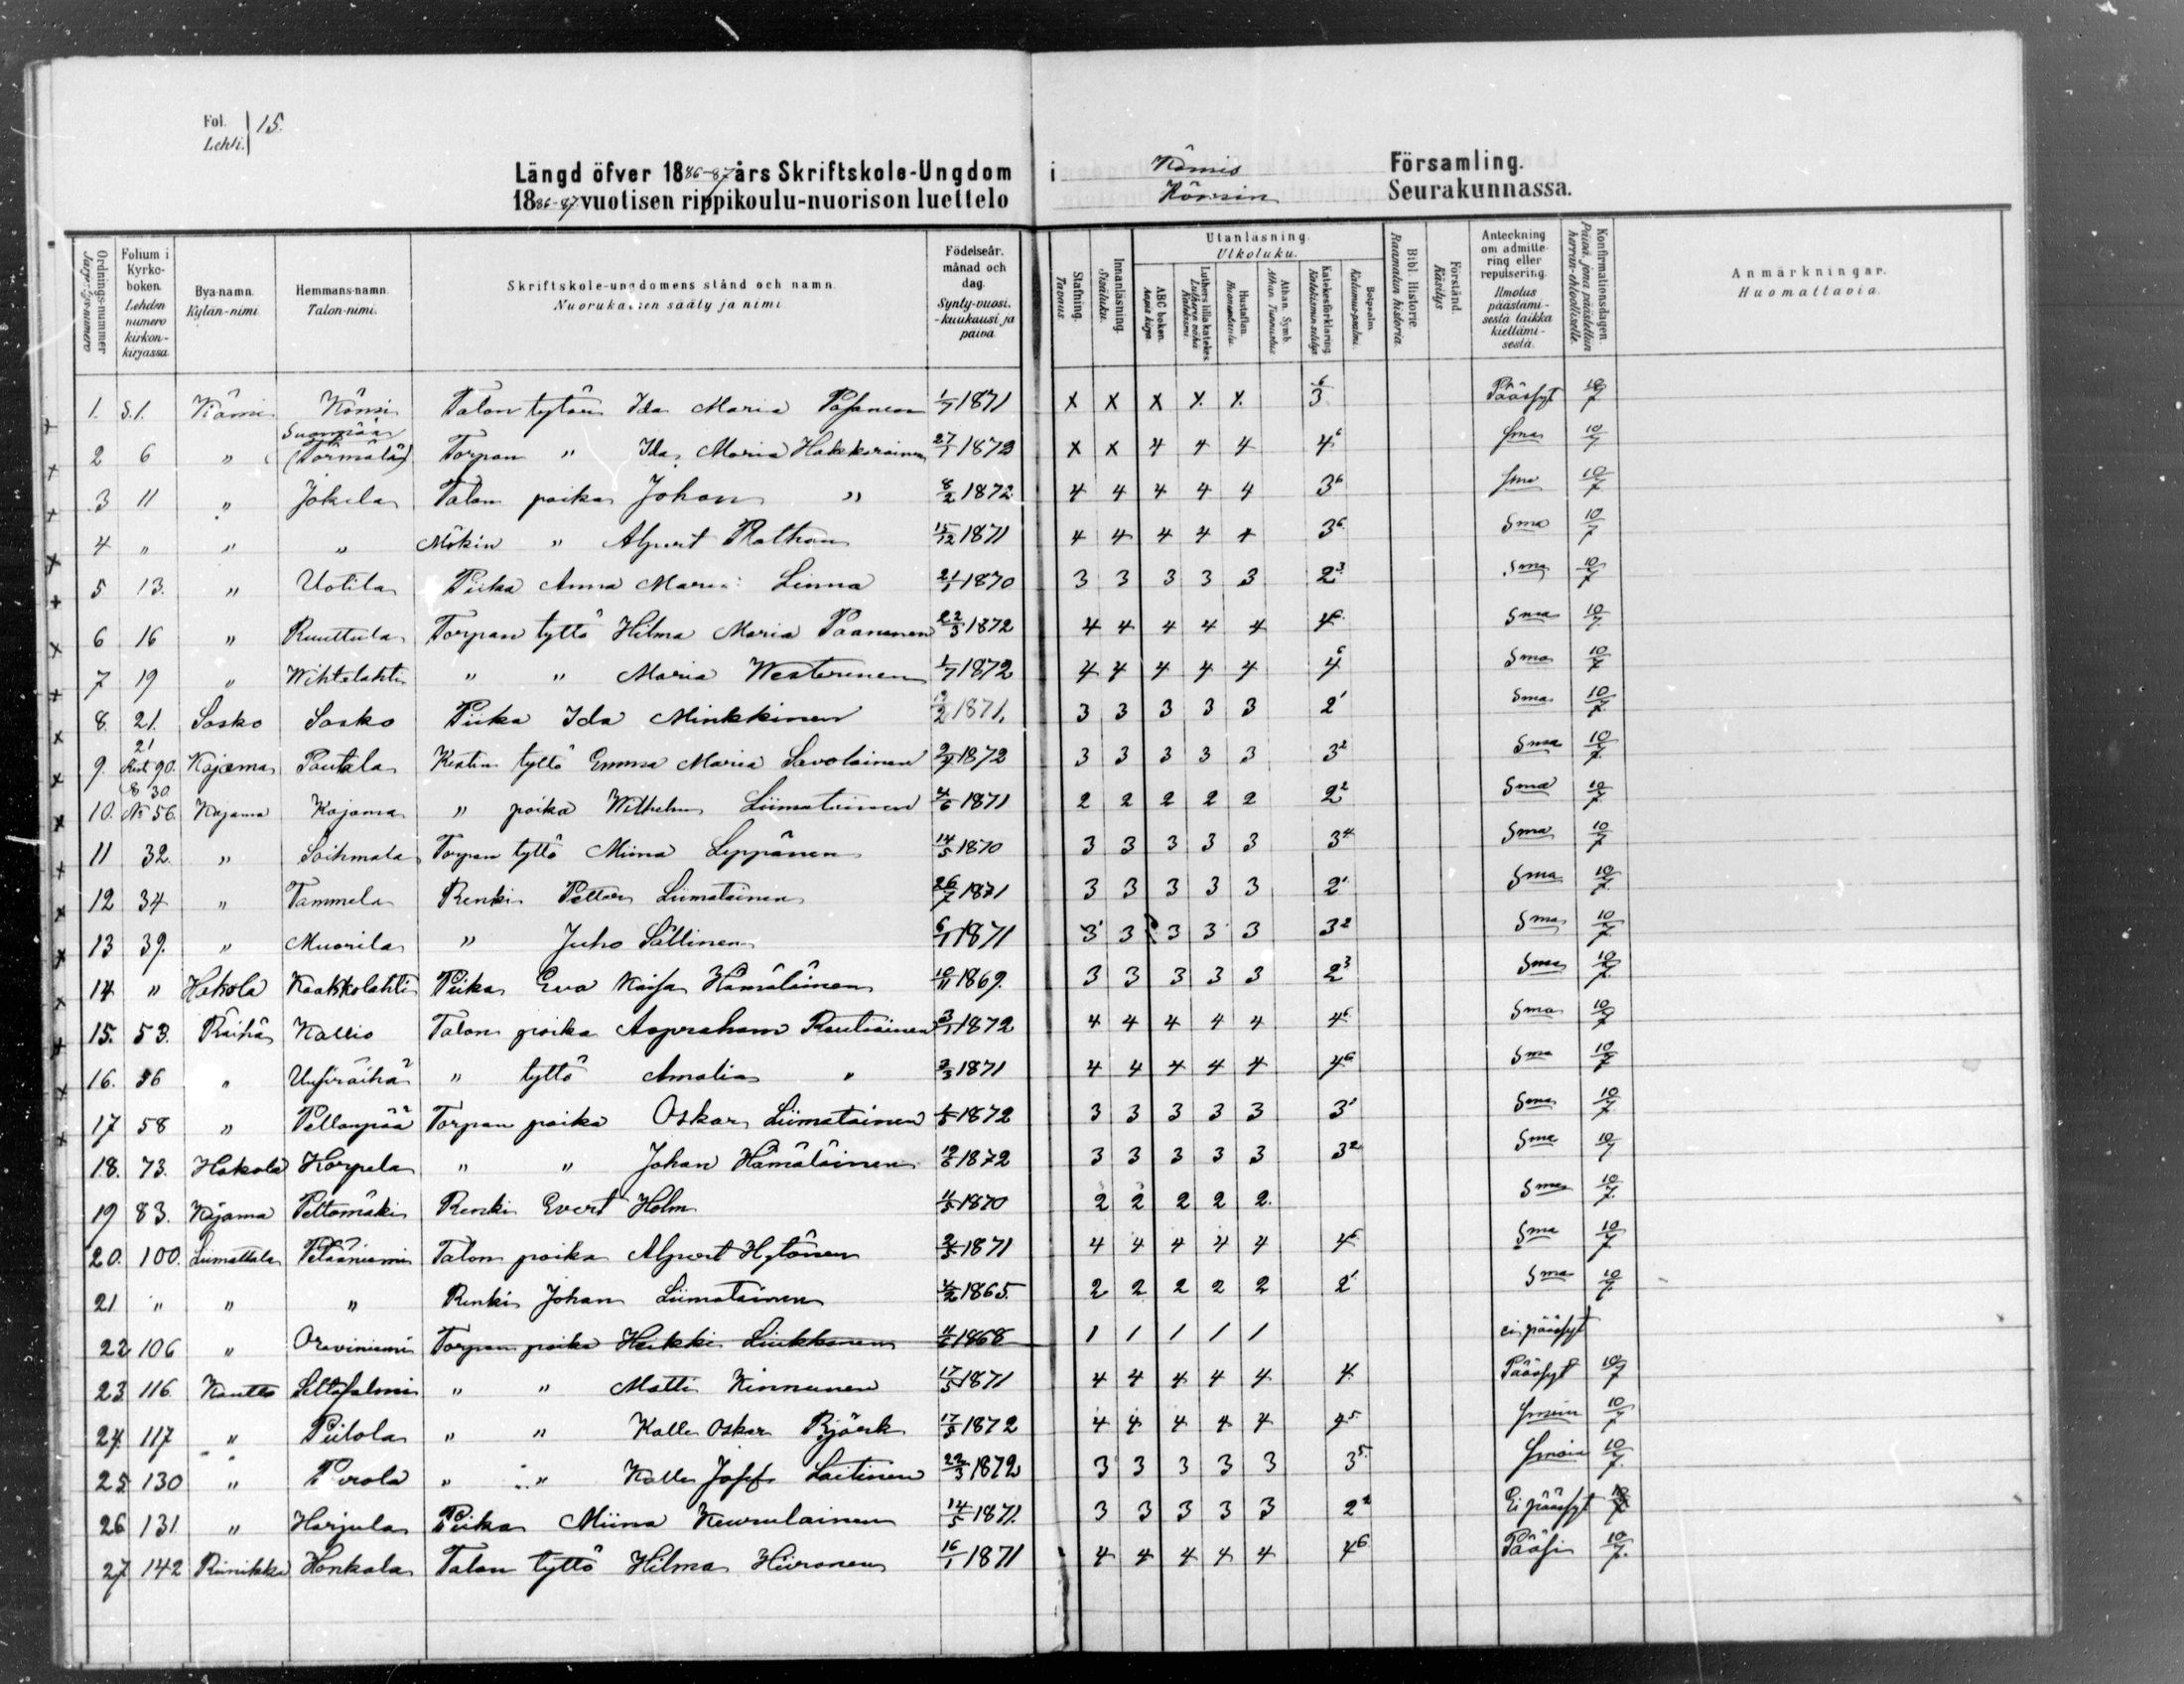 Fol. Lehti. 15.
Längd öfver 1886-87 års Skriftskole-Ungdom i Församling.
1886-87 vuotisen rippikoulu-nuorison luettelo Seurakunnassa.
Ordnings-nummer Järjestys-numero
Folium i Kyrko-boken. Lehden numero kirkon-kirjassa.
Bya-namn. Kylän-nimi.
Hemmans-namn. Talon-nimi.
Skriftskole-ungdomens stånd och namn. Nuorukaisen sääty ja nimi.
Födelseår. månad och dag. Synty-vuosi. -kuukausi ja päivä.
Stafning. Tavaus
Innanläsning. Sisäluku.
Utanläsning. Ulkoluku.
ABC boken. Aapis kirja.
Luthers lilla katekes. Lutherin vähä Katekismi
Hustaflan. Huoneentaulu.
Athan. Symb. Athan. Tunnustus
Katekesförklaring. Katekismun selitys
Botpsalm. Katumus-psalmi.
Bibl. Historie. Raamatun historia.
Förstånd. Käsitys
Anteckning om admittering eller repulsering. Ilmotus päästämisestä taikka kieltämisestä.
Konfirmationsdagen. Päivä, jona päästettiin herran-ehtoolliselle.
Anmärkningar. Huomattavia.
1. S.1. Könsi Talon tytär Ida Maria Pasanen 1/7 1871 x x x x x 3 6 Päässyt 10/7
2 6 " (Törmälä) Torpan " Ida Maria Hakkarainen 27/1 1872 x x 4 4 4 4 6 Sma 10/7
3 11 " Jokela Talon poika Johan " 8/2 1872 4 4 4 4 4 3 6 Sma 10/7
4 " " " Mökin " Alpert 15/12 1871 4 4 4 4 4 3 6 Sma 10/7
5 13. " Uotila Piika Anna Maria Linna 21/1 1870 3 3 3 3 3 2 3 Sma 10/7
6 16 " Ruuttula Torpan tyttö Hilma Maria Paananen 22/3 1872 4 4 4 4 4 4 6 Sma 10/7
7 19 " Wihtalahti " " Maria Westerinen 1/7 1872 4 4 4 4 4 4 6 Sma 10/7
8. 21. Sosko Sosko Piika Ida Minkkinen 1871. 3 3 3 3 3 2 1 Sma 10/7
9. 21 90. Kajama Pautala Kestin tyttö Emma Maria Savolainen 1872 3 3 3 3 3 3 2 Sma 10/7
10. 30 No 56. Kajama Kajama " poika Wilhelm Liimatainen 4/6 1871 2 2 2 2 2 2 2 Sma 10/7
11 32. " Soihmala Torpan tyttö Miina Leppänen 14/5 1870 3 3 3 3 3 3 4 Sma 10/7
12 34 " Tammela Renki Petter Liimatainen 26/7 1871 3 3 3 3 3 2 1 Sma 10/7
13 39. " Muorila " Juho Sällinen 6/1 1871 3 3 3 3 3 3 2 Sma 10/7
14 " Hokola Kaakkolahti Piika Eva Kaisa Hämäläinen 10/11 1869. 3 3 3 3 3 2 3 Sma 10/7
15. 53. Räihä Kallio Talon poika Aapraham Rautiainen 3/1 1872 4 4 4 4 4 4 6 Sma 10/7
16. 56 " Uusiräihä " tyttö Amalia " 3/3 1871 4 4 4 4 4 4 6 Sma 10/7
17 58 " Pellonpää Torpan poika Oskar Liimatainen 1872 3 3 3 3 3 3 1 Sma 10/7
18. 73. Hokola Korpela " " Johan Hämäläinen 1872 3 3 3 3 3 3 2 Sma 10/7
19 83. Kajama Peltomäki Renki Evert Holm 1870 2 2 2 2 2. Sma 10/7
20. 100. Liimattala Talon poika Alpert Hytönen 1871 4 4 4 4 4 4 6 Sma 10/7
21 " " " Renki Johan Liimatainen 1865. 2 2 2 2 2 2 1 Sma 10/7
22 106 " Oraviniemi Torpan poika Heikki Liukkonen 1868 1 1 1 1 1 ei päässyt
23. 116. Kautto " " Matti Kinnunen 17/5 1871 4 4 4 4 4 4 Päässyt 10/7
24. 117 " Piilola " " Kalle Oskar Björk 17/5 1872 4 4 4 4 4 4 5 10/7
25 130 " Perola " " Kalle Josef Laitinen 22/3 1872 3 3 3 3 3 3 5 10/7
26 131 " Harjula Piika Miina Keurulainen 14/5 1871. 3 3 3 3 3 2 2 Ei päässyt
27 142 Riinikka Honkala Talon tyttö Hilma Hiironen 16/1 1871 4 4 4 4 4 4 6 Pääsi 10/7